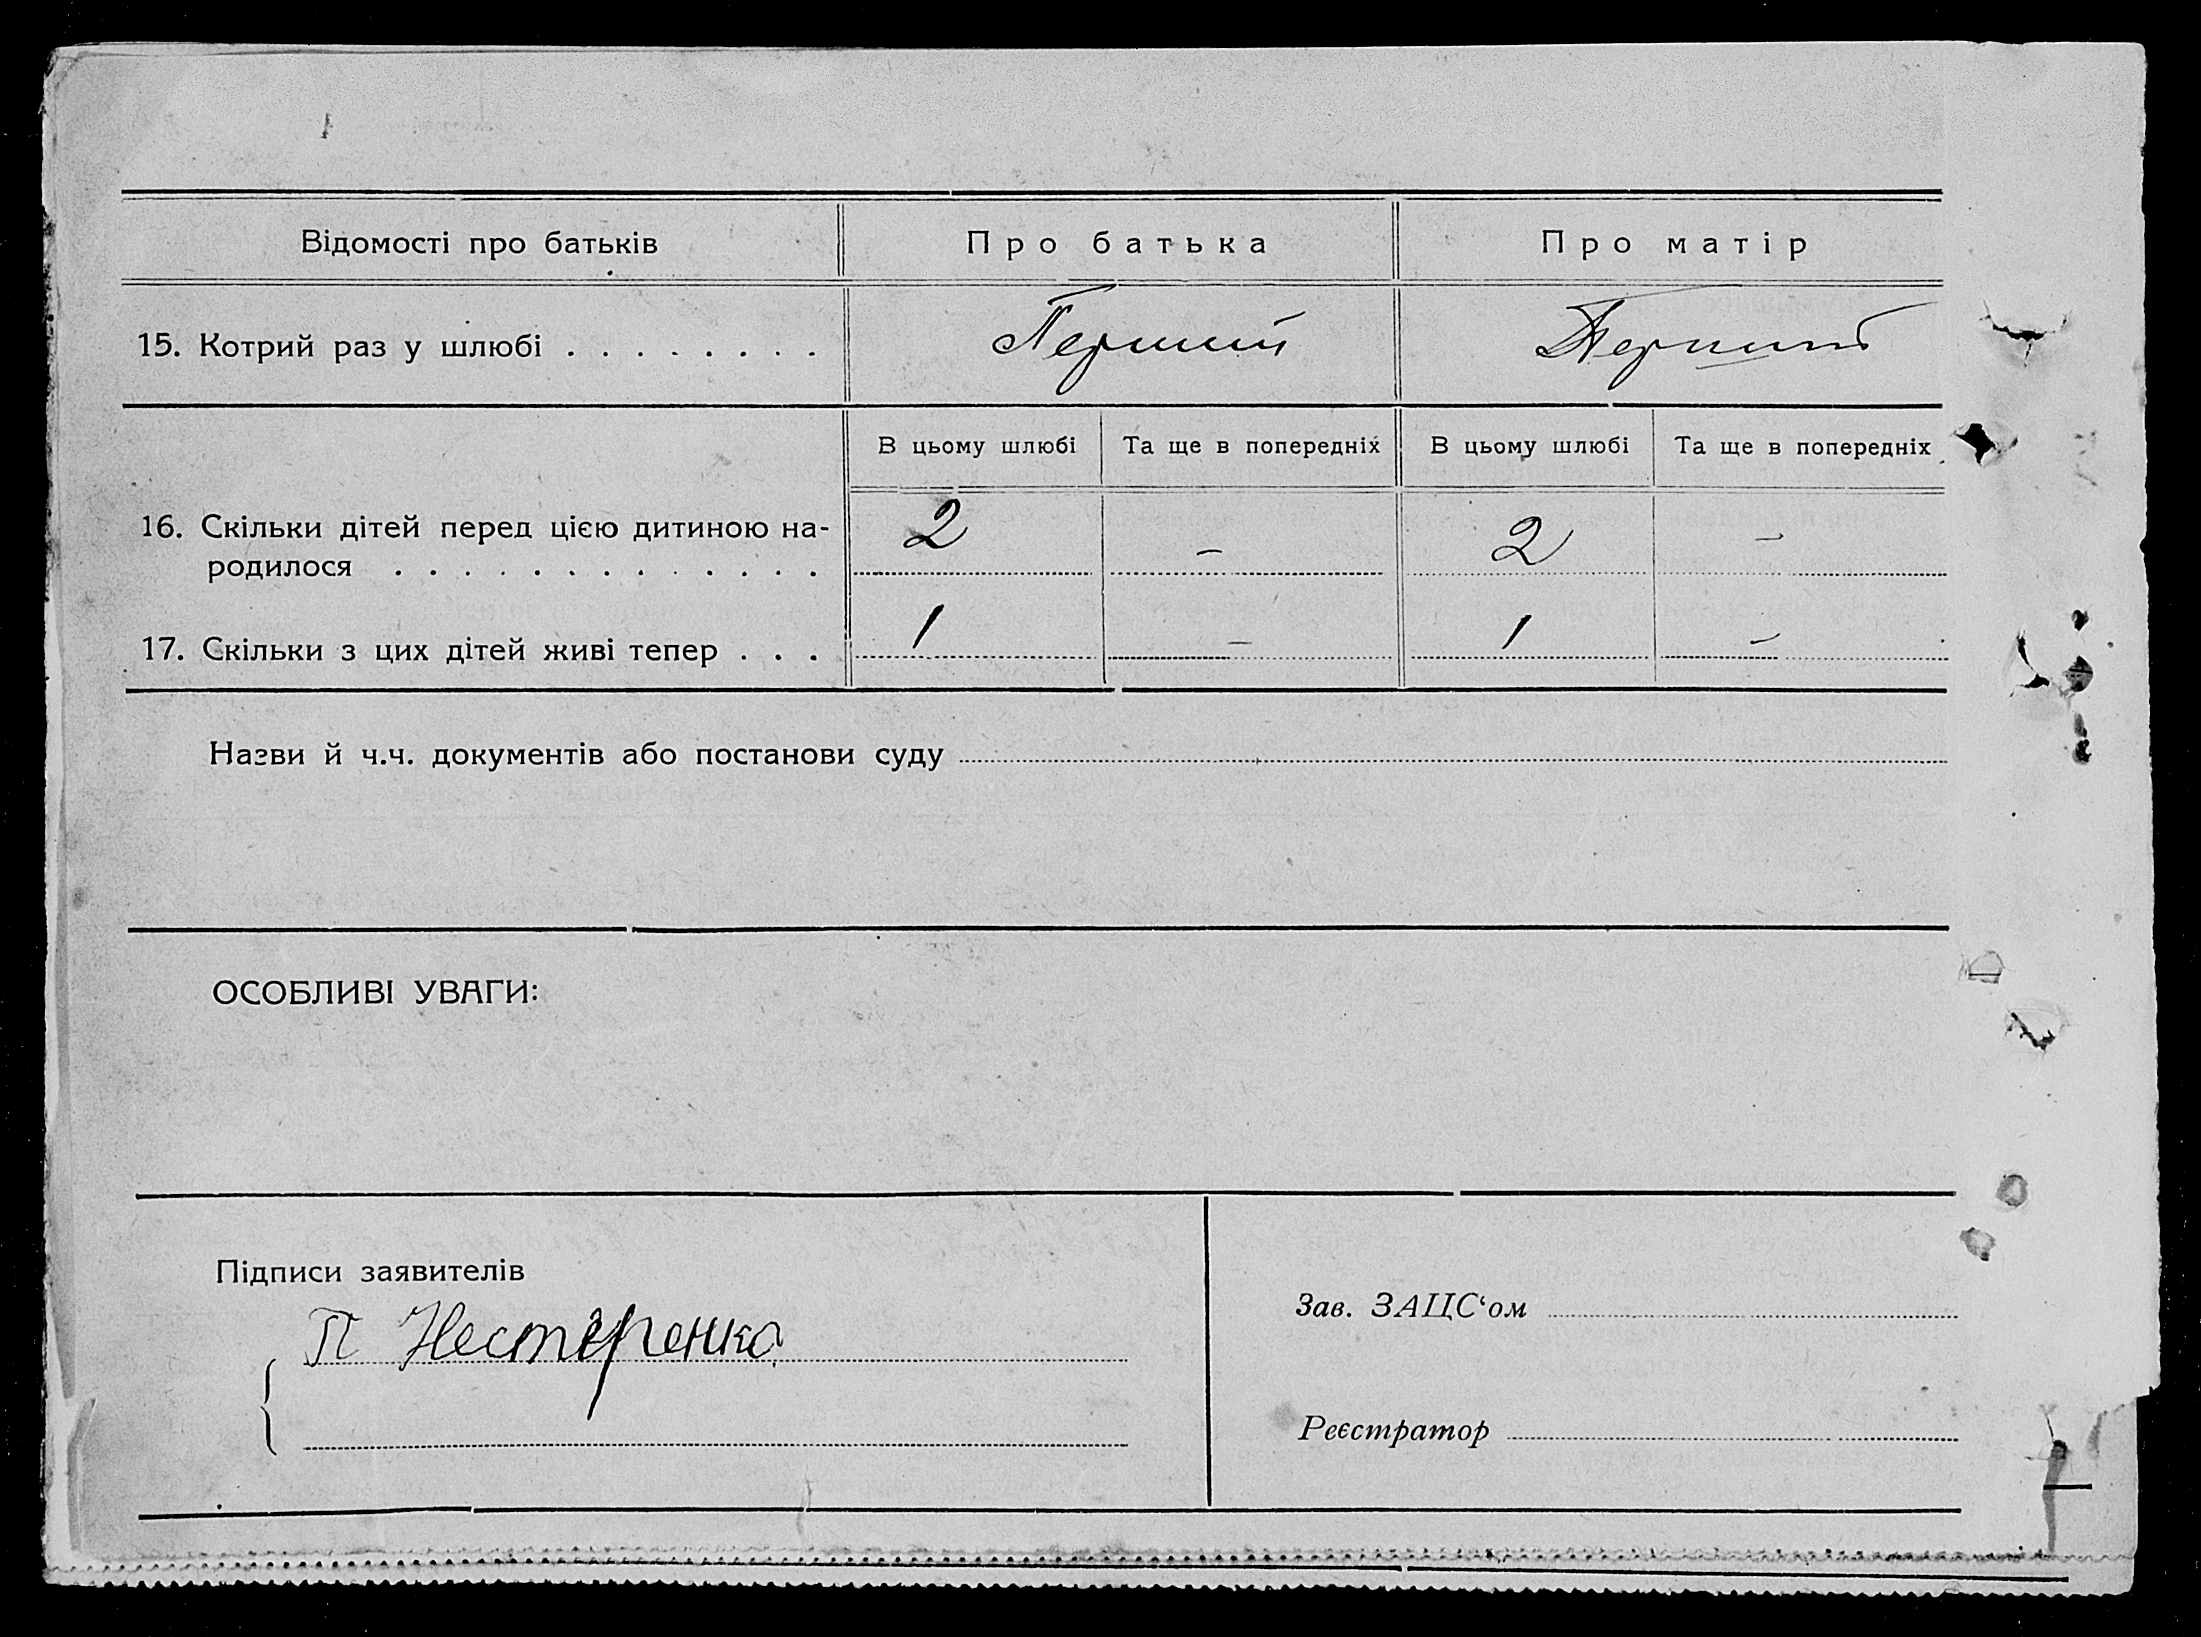 Відомості про батьків Про батька Про матір
15. Котрий раз у шлюбі . . . . . . . . Перший Перший
В цьому шлюбі Та ще в попередніх В цьому шлюбі Та ще в попередніх
16. Скільки дітей перед цією дитиною на-
родилося . . . . . . . . . . . . . 2 – 2 –
17. Скільки з цих дітей живі тепер . . . 1 – 1 –
Назви й ч.ч. документів або постанови суду
ОСОБЛИВІ УВАГИ:
Підписи заявителів
П Нестеренко
Зав. ЗАЦС‘ом
Реєстратор